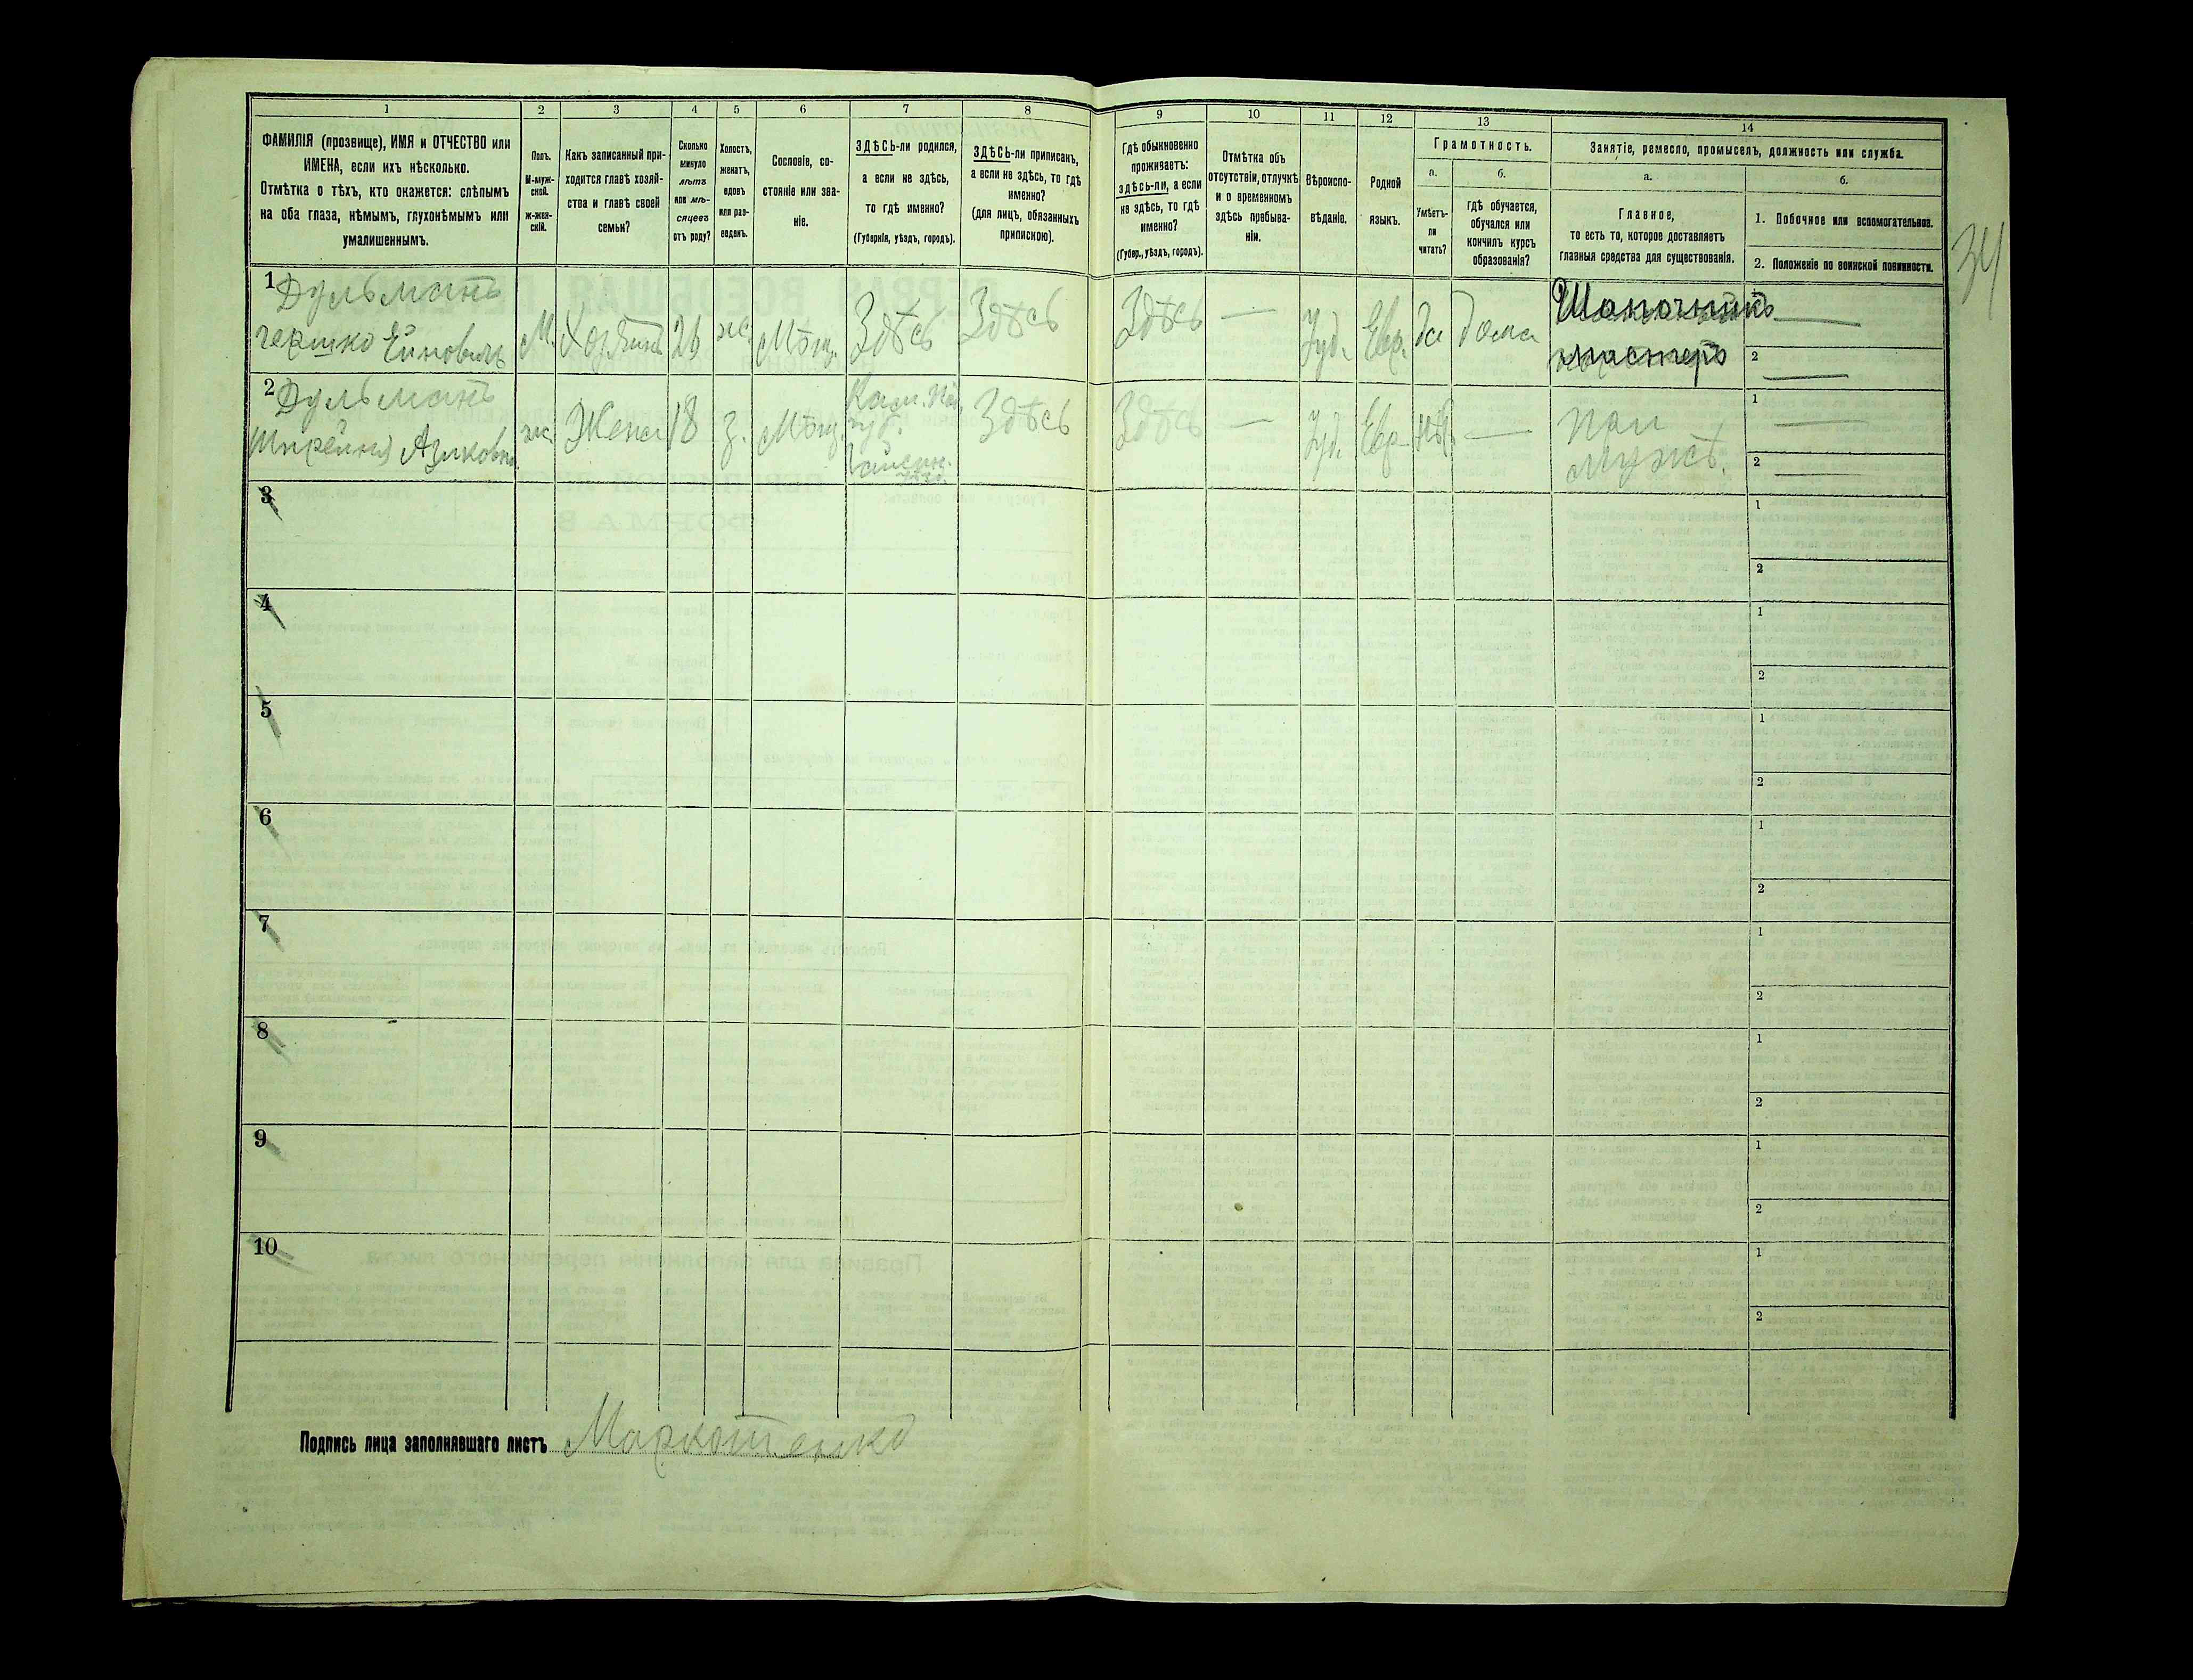 1 2 3 4 5 6 7 8 9 10 11 12 13 14
ФАМИЛІЯ (прозвище), ИМЯ и ОТЧЕСТВО или
ИМЕНА, если ихъ нѣсколько.
Отмѣтка о тѣхъ, кто окажется: слѣпымъ
на оба глаза, нѣмымъ, глухонѣмымъ или
умалишеннымъ.
Полъ.
М-муж-
ской.
ж-жен-
скій.
Какъ записанный при-
ходится главѣ хозяй-
ства и главѣ своей
семьи?
Сколько
минуло
лѣтъ
или мѣ-
сяцевъ
отъ роду?
Холостъ,
женатъ,
вдовъ
или раз-
веденъ.
Сословіе, со-
стояніе или зва-
ніе.
ЗДѢСЬ-ли родился,
а если не здѣсь,
то гдѣ именно?
(Губернія, уѣздъ, городъ).
ЗДѢСЬ-ли приписанъ,
а если не здѣсь, то гдѣ
именно?
(для лицъ, обязанныхъ
припискою).
Гдѣ обыкновенно
проживаетъ:
здѣсь-ли, а если
не здѣсь, то гдѣ
именно?
(Губер., уѣздъ, городъ).
Отмѣтка объ
отсутствіи, отлучкѣ
и о временномъ
здѣсь пребыва-
ніи.
Вѣроиспо-
вѣданіе.
Родной
языкъ.
Грамотность.
а.
Умѣетъ-
ли
читать?
б.
гдѣ обучается,
обучался или
кончилъ курсъ
образованія?
Занятіе, ремесло, промыселъ, должность или служба.
а.
Главное,
то есть то, которое доставляетъ
главныя средства для существованія.
б.
1. Побочное или вспомогательное.
2. Положеніе по воинской повинности.
34
1 Дульманъ
гершко
М. Хозяинъ ж. Мѣщ. Здѣсь Здѣсь Здѣсь — Іуд. Евр. да дома
Шапочникъ
мастеръ
1 —
2 —
2 Дульманъ
Азиковна
ж. Жена 18 з. Мѣщ.
Кам. Под.
губ.
Здѣсь Здѣсь — Іуд. Евр. нѣтъ —
при
мужѣ.
1 —
2 —
3 1
2
4 1
2
5 1
2
6 1
2
7 1
2
8 1
2
9 1
2
10 1
2
Подпись лица заполнявшаго листъ